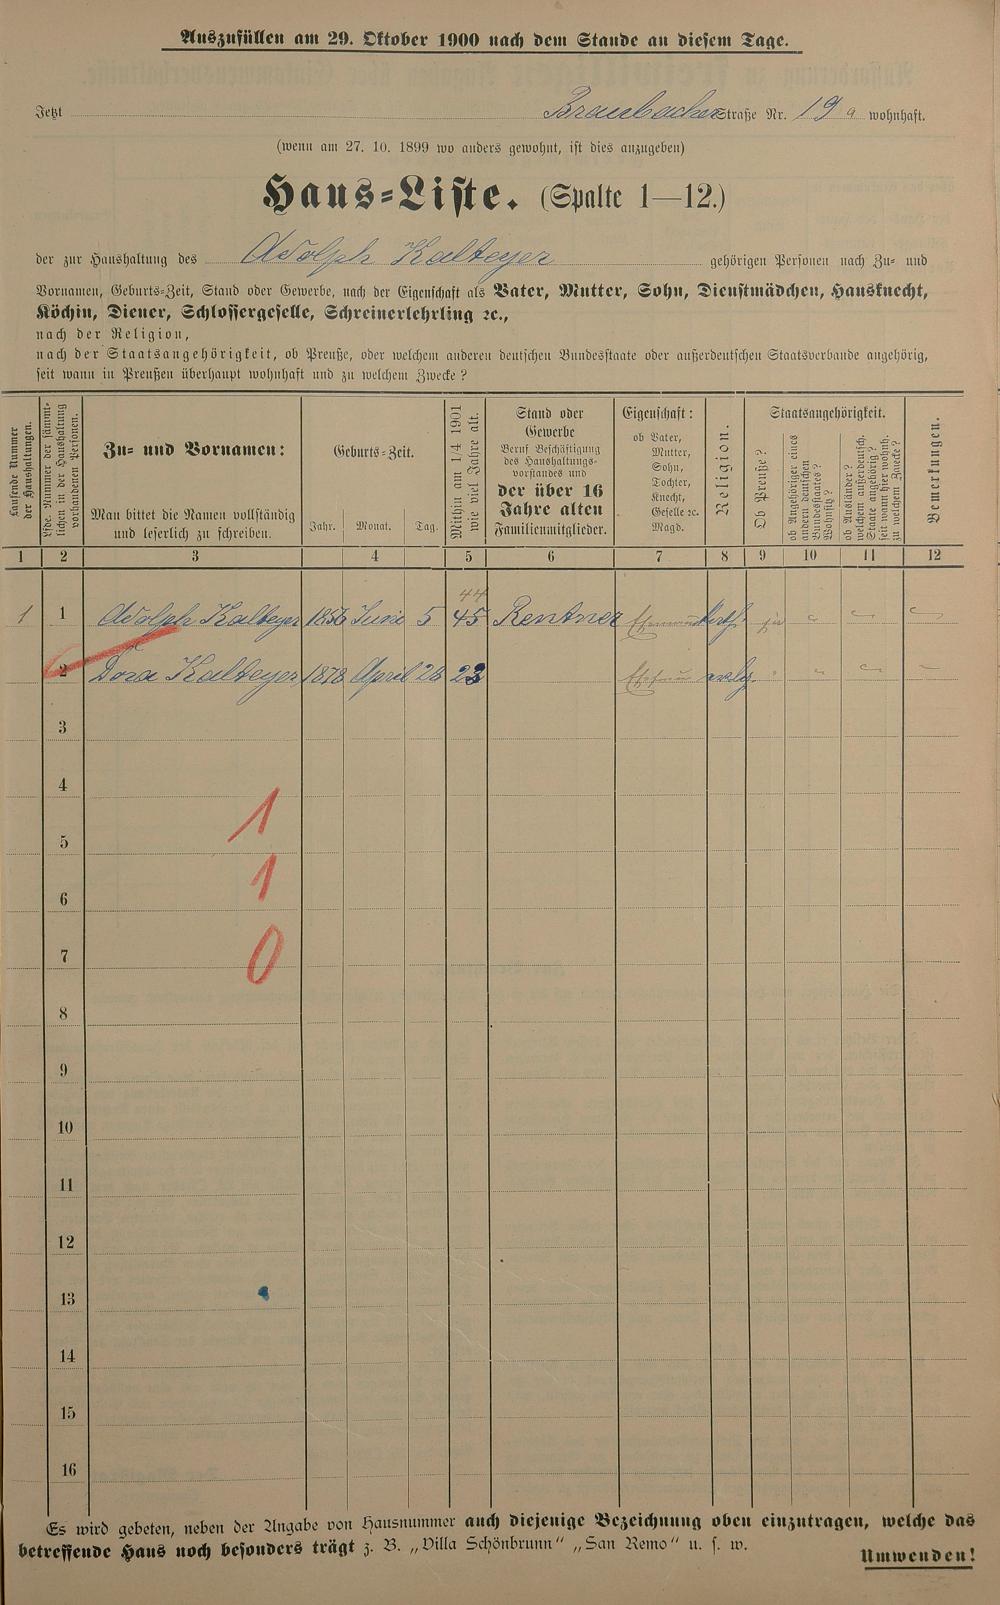 Auszufüllen am 29. Oktober 1900 nach dem Stande an diesem Tage.
Jetzt Braubacher Straße Nr. 19 a wohnhaft.
(wenn am 27. 10. 1899 wo anders gewohnt, ist dies anzugeben)
Haus-Liste. (Spalte 1—12.)
der zur Haushaltung des Adolph Kalteyer gehörigen Personen nach Zu- und
Vornamen, Geburts-Zeit, Stand oder Gewerbe, nach der Eigenschaft als Vater, Mutter, Sohn, Dienstmädchen, Hausknecht,
Köchin, Diener, Schlossergeselle, Schreinerlehrling ꝛc.,
nach der Religion,
nach der Staatsangehörigkeit, ob Preuße, oder welchem anderen deutschen Bundesstaate oder außerdeutschen Staatsverbande angehörig,
seit wann in Preußen überhaupt wohnhaft und zu welchem Zwecke?
Laufende Nummer
der Haushaltungen.
Lfde. Nummer der sämmt-
lichen in der Haushaltung
vorhandenen Personen.
Zu- und Vornamen:
Man bittet die Namen vollständig
und leserlich zu schreiben.
Geburts-Zeit.
Jahr. Monat. Tag.
Mithin am 1/4 1901
wie viel Jahre alt.
Stand oder
Gewerbe
Beruf Beschäftigung
des Haushaltungs-
vorstandes und
der über 16
Jahre alten
Familienmitglieder.
Eigenschaft:
ob Vater,
Mutter,
Sohn,
Tochter,
Knecht,
Geselle ꝛc.
Magd.
Religion.
Staatsangehörigkeit.
Ob Preuße?
ob Angehöriger eines
andern deutschen
Bundesstaates?
Wohnsitz?
ob Ausländer?
welchem außerdeutsch.
Staate angehörig?
seit wann hier wohnh.
zu welchem Zwecke?
Bemerkungen.
1 2 3 4 5 6 7 8 9 10 11 12
44
1 1 Adolph Kalteyer 1856 Juni 5 45 Rentner Ehemann kath. ja
2 Dora Kalteyer 1878 April 28 23 Ehefrau evalg. "
3
4
1
5
1
6
0
7
8
9
10
11
12
13
14
15
16
Es wird gebeten, neben der Angabe von Hausnummer auch diejenige Bezeichnung oben einzutragen, welche das
betreffende Haus noch besonders trägt z. B. „Villa Schönbrunn" „San Remo" u. s. w.
Umwenden!